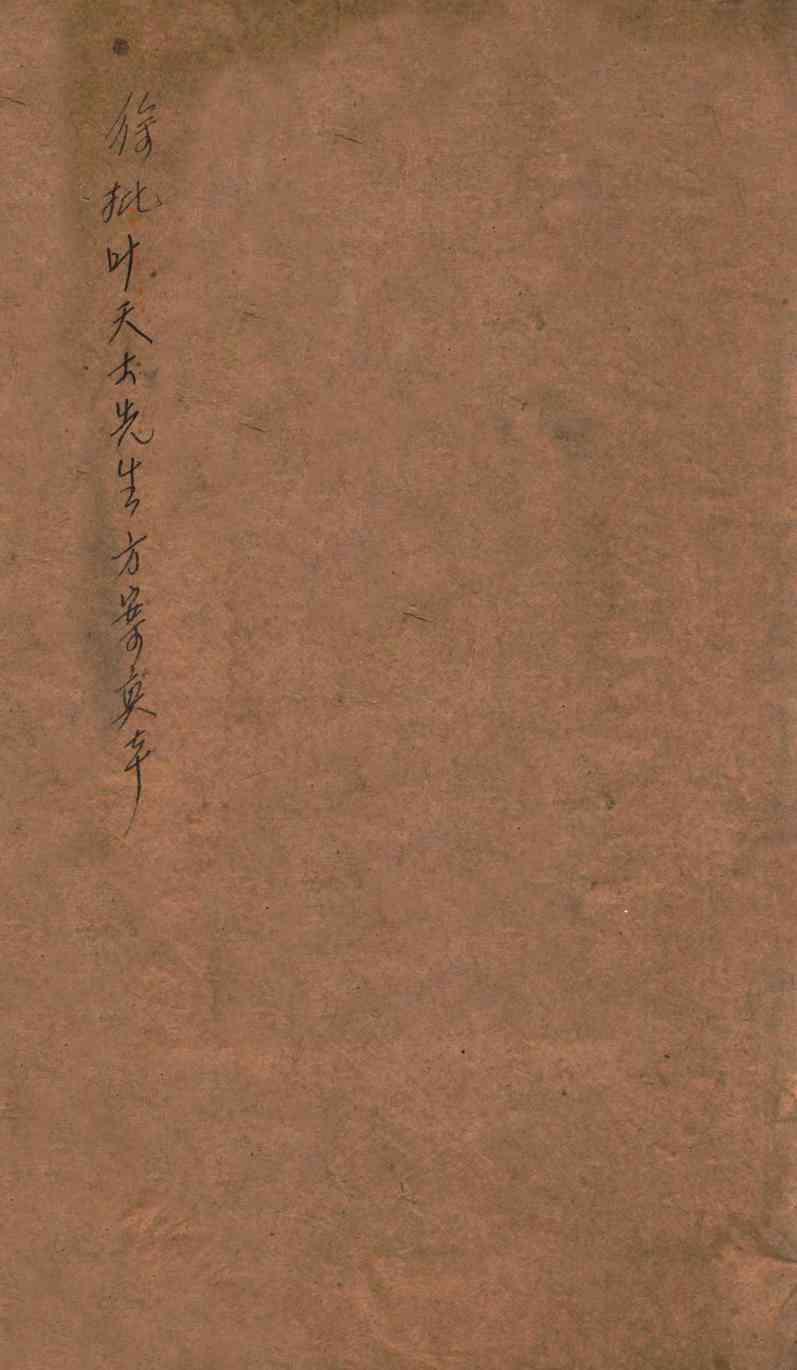 徐批叶天士先生方案真本